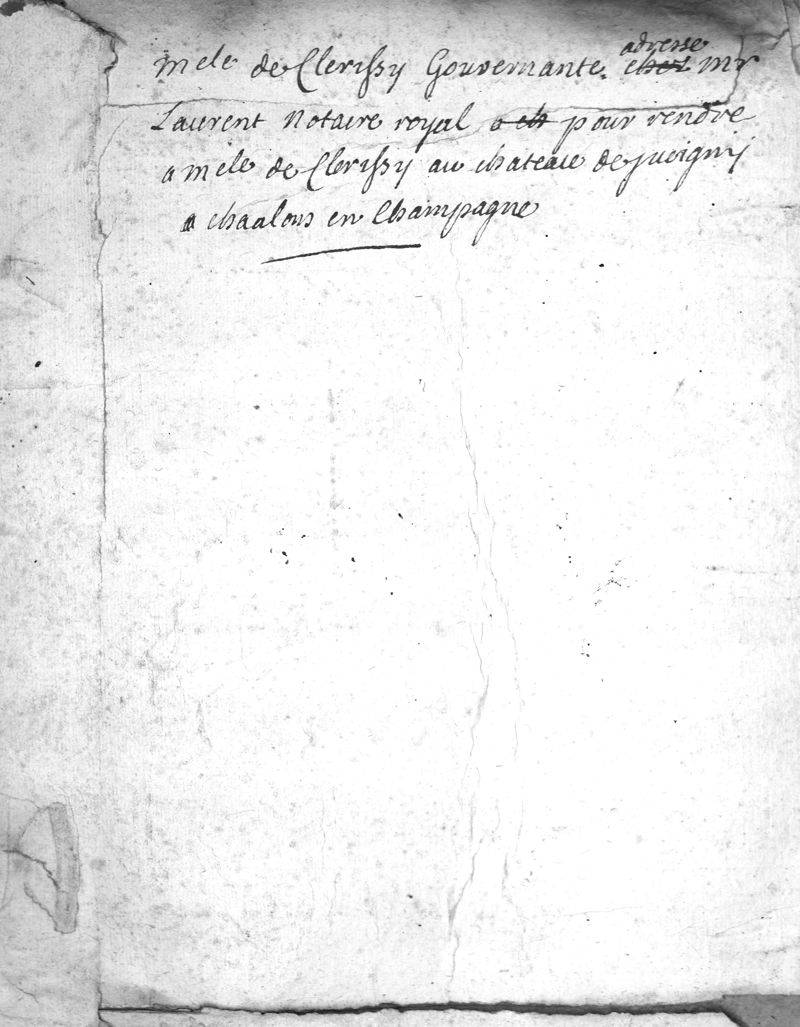 Mele de Clerissy Gouvernante. adresse chez Mr
Laurent Notaire royal a ch pour rendre
a Mele de Clerissy au chateau de juvigny
a chaalons en Champagne